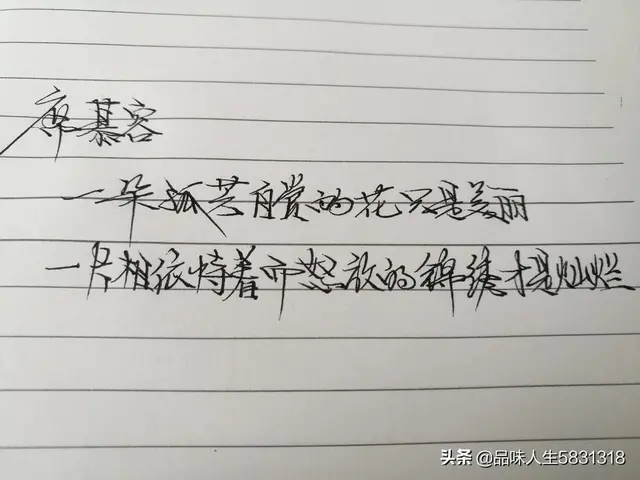 席慕容
一朵孤芳自赏的花只是美丽
一片相依恃着而怒放的锦绣才是灿烂
头条 @品味人生5831318